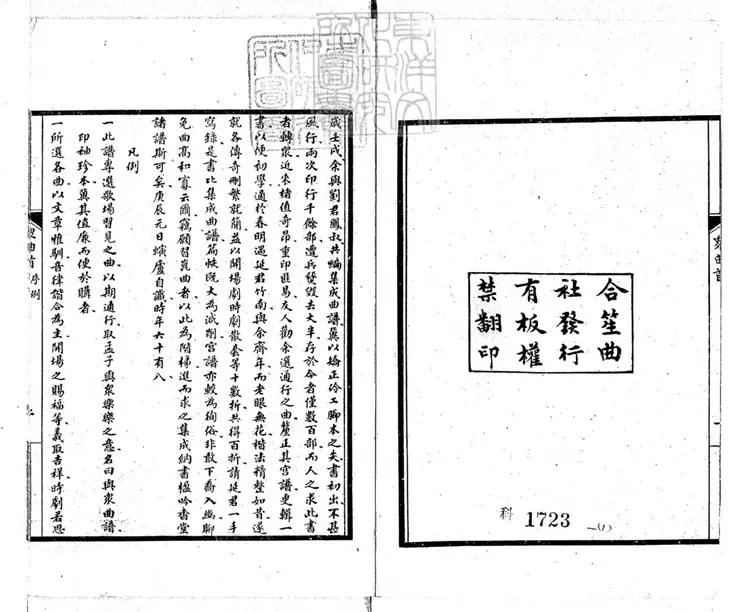 合笙曲
社發行
有板權
禁翻印
科 1723 (1)
歲壬戌余與劉君鳳叔共編集成曲譜冀以矯正伶工腳本之失書初出不甚
風行兩次印行千餘部遭兵燹毀去大半存於今者僅數百部而人之求此書
者轉眾近來楮值奇昂重印匪易友人勸余選通行之曲釐正其宮譜更輯一
書以便初學適於春明遇延君竹南與余齊年而老眼無花楷法精整如昔遂
就各傳奇刪繁就簡益以開場劇時劇散套等十數折共得百折請延君一手
寫錄是書比集成曲譜篇帙既大為減削宮譜亦較為徇俗非敢下喬入幽聊
免曲高和寡云爾竊願習崑曲者以此為階梯進而求之集成納書楹吟香堂
諸譜斯可矣庚辰元日螾廬自識時年六十有八
凡例
一此譜專選歌場習見之曲以期通行取孟子與眾樂樂之意名曰與眾曲譜
印袖珍本冀其值廉而便於購者
一所選各曲以文章雅馴音律諧合為主開場之賜福等義取吉祥時劇若思
序例